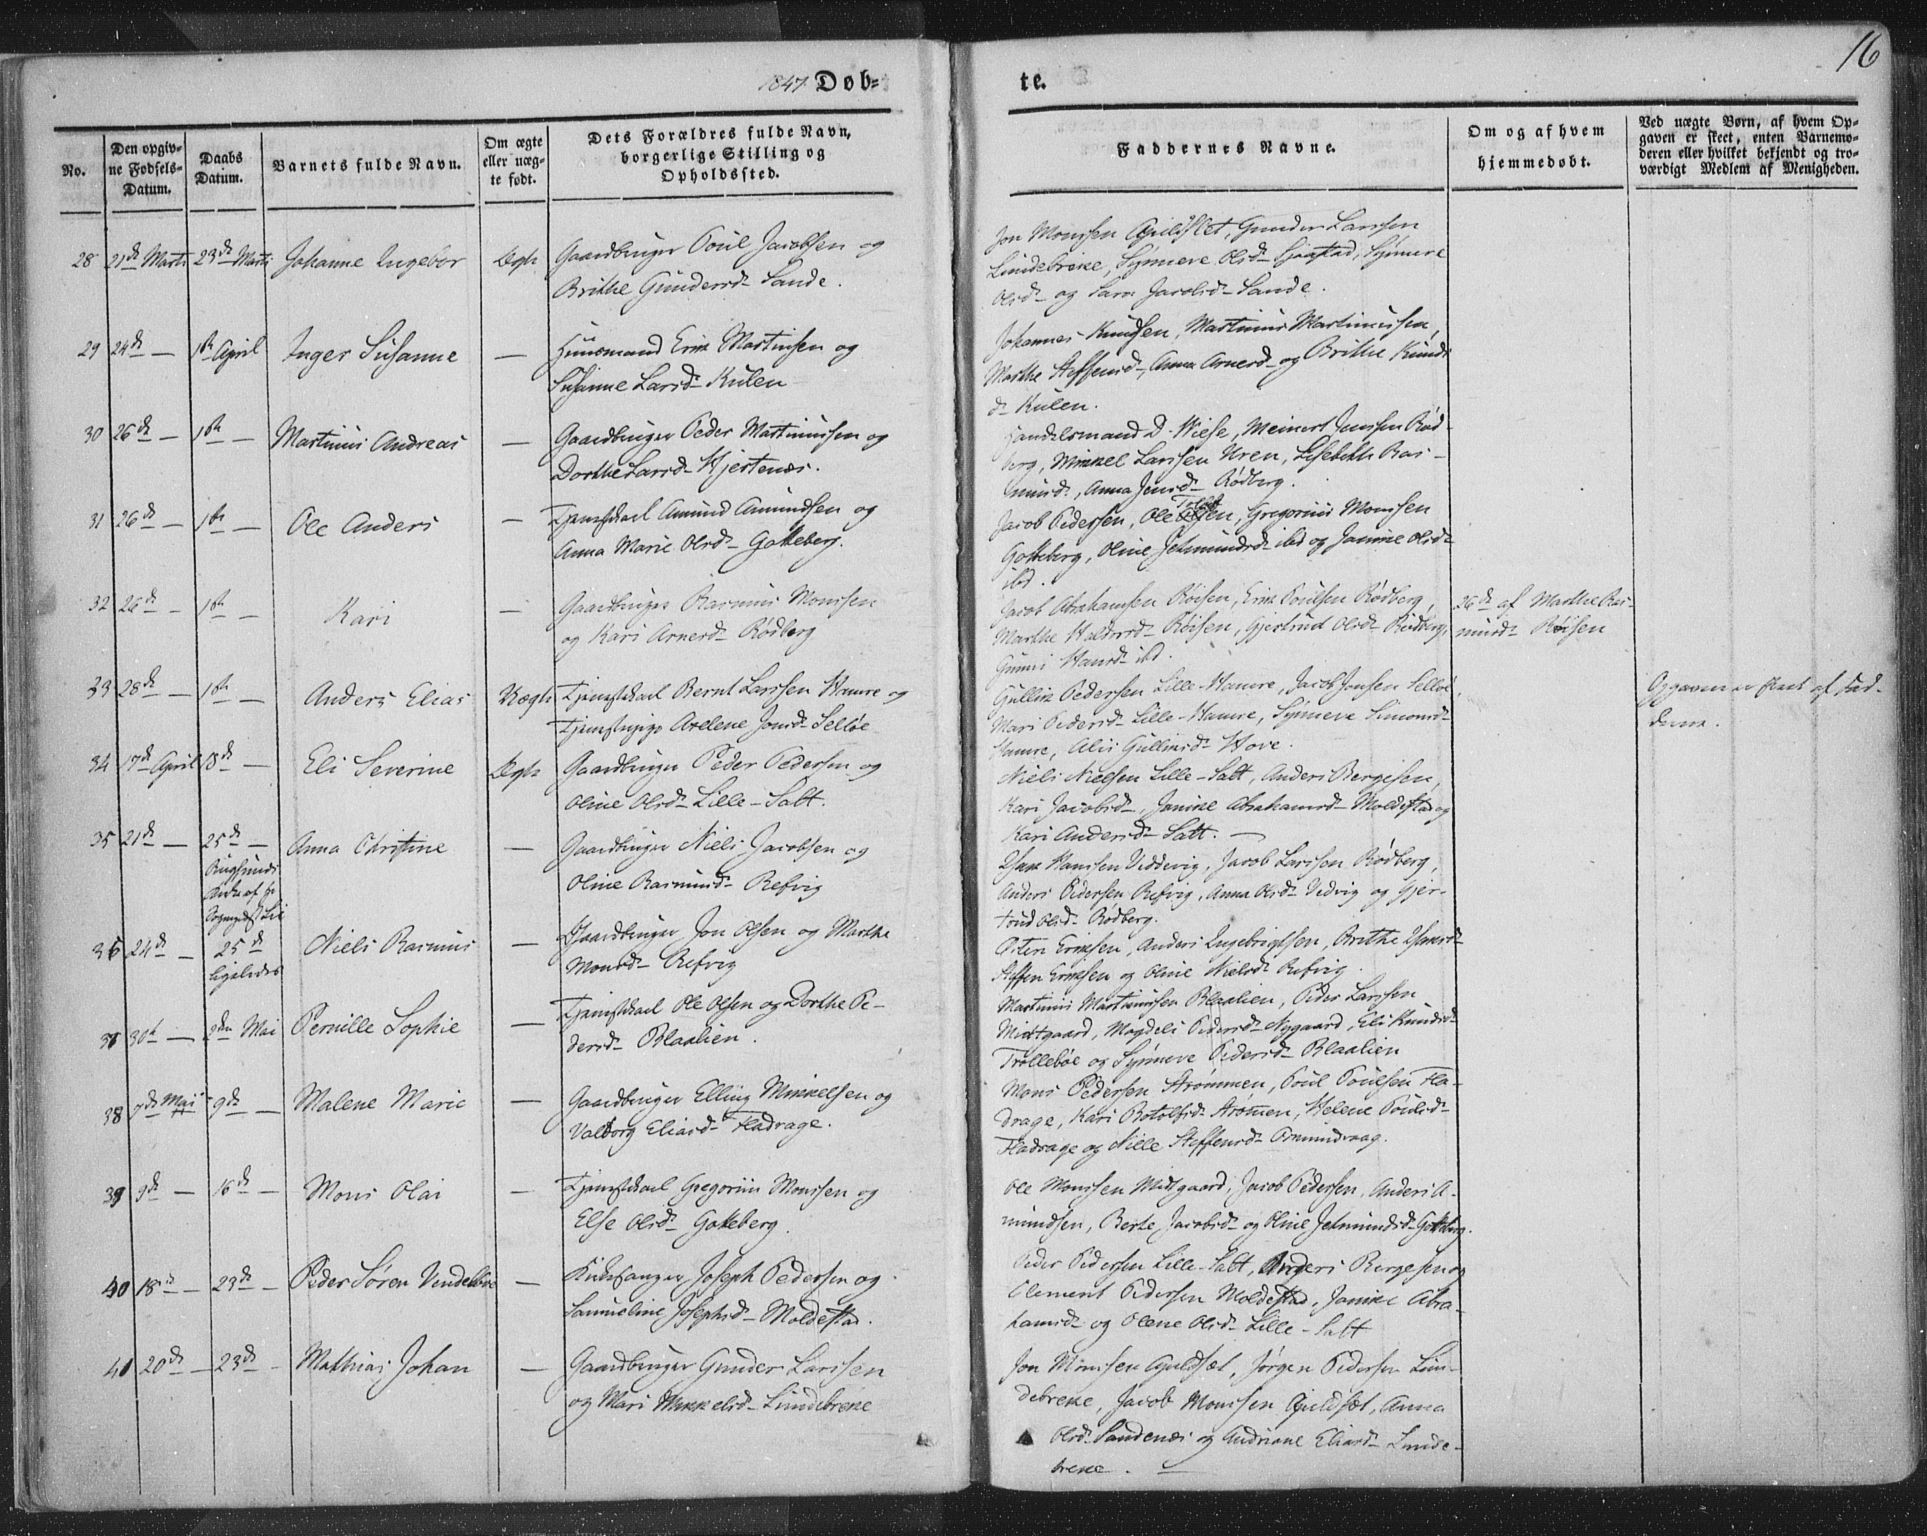 16
1847 Døb=
te.
No.
Den opgiv-
ne Fødsels-
Datum.
Daabs
Datum.
Barnets fulde Navn.
Om ægte
eller uæg-
te født.
Dets Forældres fulde Navn,
borgerlige Stilling og
Opholdssted.
Faddernes Navne.
Om og af hvem
hjemmedøbt.
Ved uægte Børn, af hvem Op-
gaven er skeet, enten Barnemo-
deren eller hvilket bekjendt og tro-
værdigt Medlem af Menigheden.
28 21de Marts 23de Marts Johanne Ingebor Ægte Gaardbruger Poul Jacobsen og
Brithe Gundersd. Sande.
Jon Monssen Guldsæt, Gunder Larssen
Lundebrekke, Synneve Olsd. Sjaastad, Synneve
Olsd. og Sara Jacobsd. Sande.
29 24de — 1ste April Inger Susanne — Huusmand Erik Martinsen og
Susanne Larsd. Kulen
Johannes Knudsen, Martinus Martinussen,
Marthe Steffensd., Anna Arnesd. og Brithe Knuds
d. Kulen.
30 26de — 1ste — Martinus Andreas — Gaardbruger Peder Martinussen og
Dorthe Larsd. Hjertenæs.
Handelsmand D. Wiese, Meinert Jenssen Rød-
berg, Mikkel Larssen Uren, Lisebeth Ras-
musd., Anna Jensd. Rødberg.
31 26de — 1ste — Ole Anders — Tjenestekarl Amund Amundsen og
Anna Marie Olsd. Gotteberg.
Jacob Pedersen, Ole, Gregorius Monssen
Gotteberg, Oline Jetmundsd. ibd og Janine Olsd.
ibd.
32 26de — 1ste — Kari — Gaardbruger Rasmus Monssen
og Kari Arnesd. Rødberg
Jacob Abrahamsen Røisen, Erik Poulsen Rødberg,
Marthe Røisen, Gjertrud Olsd. Rødberg,
Gunni Hansd. ibd.
26de af Marthe Ras-
musd. Røisen
33 28de — 1ste — Anders Elias Uægte Tjenestekarl Bernt Larssen Hamre og
Tjenestepige Avelene Jonsd. Selløe
Gullik Pedersen Lille-Hamre, Jacob Jonsen Selløe,
Mari Pedersd. Lille-Hamre, Synneve Simonsd.
Hamre, Alis Gulliksd. Hove.
Opgaven er skeet af Fad-
derne.
34 17de April 18de — Eli Severine Ægte Gaardbruger Peder Pedersen og
Oline Olsd. Lille-Salt.
Niels Nielsen Lille-Salt, Anders Børgesen,
Kari Jacobsd., Janikke Abrahamsd. Moldestad og
Kari Andersd. Salt. —
35 21de — 25de — Anna Christine — Gaardbruger Niels Jacobsen og
Rugsunds
Kirke af Hr
Oline Rasmusd. Refvig
Hansen Vedvig, Jacob Larssen Rødberg,
Anders Pedersen Refvig, Anna Olsd. Vedvig og Gjer-
trud Olsd. Rødberg.
36 24de — 25de Niels Rasmus — Gaardbruger Jon Olsen og Marthe
ligeledes
Monsd. Refvig
Peter Eriksen, Anders Ingebrigtsen, Brithe
Steffen Eriksen og Oline Nielsd. Refvig.
37 30te — 2den Mai Pernille Sophie — Tjenestekarl Ole Olsen og Dorthe Pe-
dersd. Blaalien.
Martinus Martinussen Blaalien, Peder Larssen
Midtgaard, Magdeli Pedersd. Nygaard, Eli Knudsd.
Trollebøe og Synneve Pedersd. Blaalien
38 7de Mai 9de — Malene Marie — Gaardbruger Elling Mikkelsen og
Valborg Eliasd. Fladrage.
Mons Pedersen Strømmen, Poul Poulsen Fla-
drage, Kari Botolfsd. Strømen, Helene Poulsd.
Fladrage og Nille Steffensd.
39 9de — 16de — Mons Olai — Tjenestekarl Gregorius Monssen og
Else Olsd. Gotteberg.
Ole Monssen Midtgaard, Jacob Pedersen, Anders A-
mundsen, Berte Jacobsd. og Oline Jetmundsd. Gotteberg.
40 18de — 23de — Peder Søren Vendelboe — Kirkesanger Joseph Pedersen og
Samueline Josephsd. Moldestad.
Peder Pedersen Lille-Salt, Anders Børgesen og
Clement Pedersen Moldestad, Janikke Abra-
hamsd. og Olene Olsd. Lille-Salt
41 20de — 23de — Mathias Johan — Gaardbruger Gunder Larssen
og Mari Mikkelsd. Lundebrekke
Jon Monssen Guldsæt, Jørgen Pedersen Lun-
debrekke, Jacob Monssen Guldsæt, Anna
Olsd. Sandenæs og Andriane Eliasd. Lunde-
brekke. —